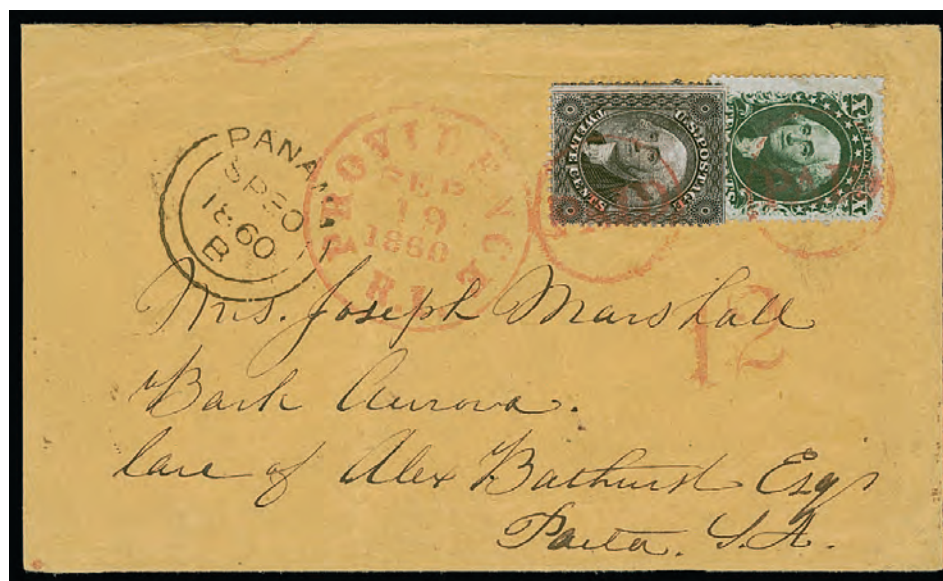 PANAMA
SP 30
1860
B
PROVIDENCE
SEP
19
1860
R.I.
U.S. POSTAGE
TWELVE CENTS
PAID
12
Mrs. Joseph Marshall
Bark Aurora.
Care of Alex Bathurst Esqr
Paita. S.A.